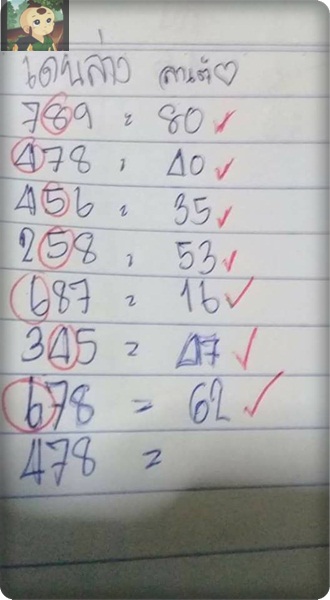 เดินล่าง สามตัว
789 = 80 ✓
478 = 40 ✓
456 = 35 ✓
258 = 53 ✓
687 = 16 ✓
345 = 47 ✓
678 = 62 ✓
478 =